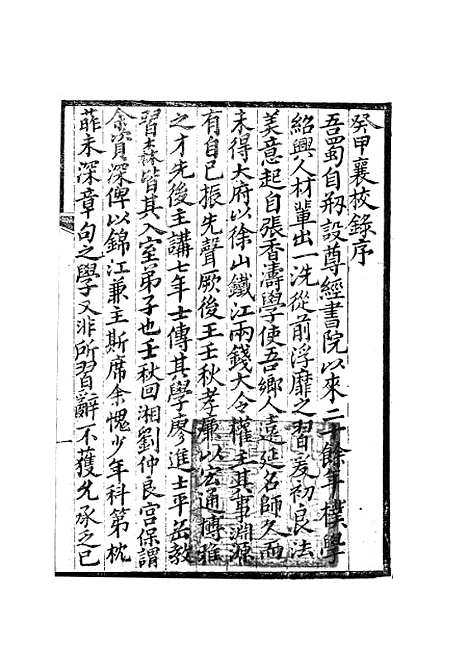 癸甲襄校錄序
吾蜀自剏設尊經書院以來二十餘年樸學
紹興人材輩出一洗從前浮靡之習爰初良法
美意起自張香濤學使吾鄉人遠延名師久而
未得大府以徐山鐵江兩錢大令權主其事淵源
有自已振先聲厥後王壬秋孝廉以宏通博雅
之才先後主講七年士傳其學廖進士平岳教
習森皆其入室弟子也壬秋回湘劉仲良宮保謂
余資深俾以錦江兼主斯席余愧少年科第枕
葄未深章句之學又非所習辭不獲允承乏已